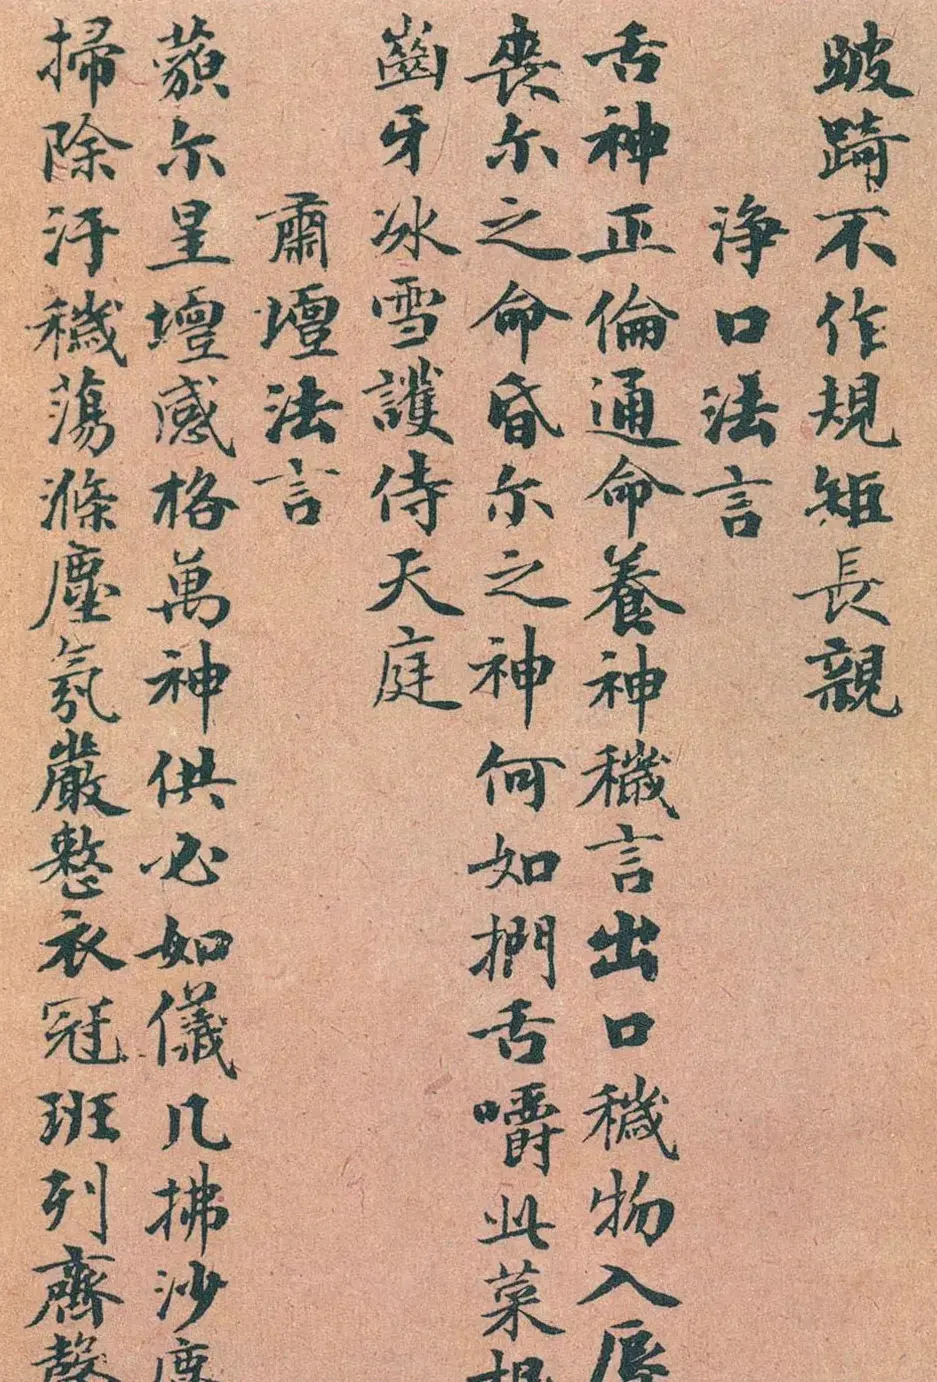 跛踦不作規矩長親
浄口法言
舌神正倫通命養神穢言出口穢物入唇
喪尔之命昏尔之神何如捫舌嚼此菜根
齒牙冰雪護侍天庭
肅壇法言
藐尔星壇感格萬神供必如儀几拂沙塵
掃除汙穢蕩滌塵氛嚴整衣冠班列齊